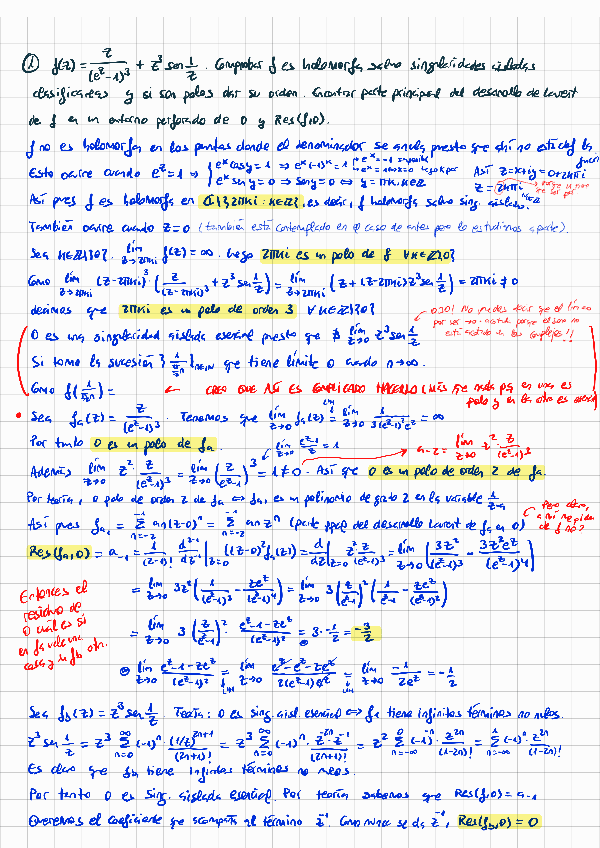 ① f(z) = z/(e^z-1)^3 + z^3 sen 1/z . Comprobar f es holomorfa salvo singularidades aisladas
clasificarlas y si son polos dar su orden. Encontrar parte principal del desarrollo de Laurent
de f en un entorno perforado de 0 y Res(f,0).
f no es holomorfa en los puntos donde el denominador se anula puesto que ahí no está def la función
Esto ocurre cuando e^z=1 ⇒ { e^x cos y = 1 ⇒ e^x(-1)^k = 1
e^x sen y = 0 ⇒ sen y = 0 ⇔ y = πk, k∈Z
Así z = x+iy = 0+2πki
z = 2πki k∈Z
Así pues f es holomorfa en C\{2πki : k∈Z}, es decir, f holomorfa salvo sing. aisladas.
También ocurre cuando z=0 (también está contemplado en el caso de antes pero lo estudiamos aparte).
Sea k∈Z\{0}. lím z→2πki f(z) = ∞. Luego 2πki es un polo de f ∀k∈Z\{0}
Como lím z→2πki (z-2πki)^3 (z/(z-2πki)^3 + z^3 sen 1/z) = lím z→2πki (z + (z-2πki)^3 z^3 sen 1/z) = 2πki ≠ 0
decimos que 2πki es un polo de orden 3 ∀k∈Z\{0}
OJO! No puedes decir que el lím es
por ser →0 · acotada porque el seno no
está acotado en los complejos!!
0 es una singularidad aislada esencial puesto que ∄ lím z→0 z^3 sen 1/z
Si tomo la sucesión que tiene límite 0 cuando n→∞.
Como f( ) = ← CREO QUE ASÍ ES COMPLICADO HACERLO (más que nada pq en una es
polo y en la otra es esencial)
• Sea fa(z) = z/(e^z-1)^3. Tenemos que lím z→0 fa(z) = lím z→0 1/(3(e^z-1)^2 e^z) = ∞
Por tanto 0 es un polo de fa.
lím z→0 (e^z-1)/z = 1
a-2 = lím z→0 z^2 · z/(e^z-1)^3
Además lím z→0 z^2 · z/(e^z-1)^3 = lím z→0 (z/(e^z-1))^3 = 1 ≠ 0. Así que 0 es un polo de orden 2 de fa.
Por teoría, 0 polo de orden 2 de fa ⇔ fa, es un polinomio de grado 2 en la variable 1/z
Así pues fa, = Σ n=-2 -1 an(z-0)^n = Σ n=-2 -1 an z^n (parte ppal del desarrollo Laurent de fa en 0)
Pero claro, a mí me piden
de f no?
Res(fa,0) = a-1 = 1/(2-1)! d^(2-1)/dz^(2-1) |z=0 ((z-0)^2 fa(z)) = d/dz |z=0 z^2 z/(e^z-1)^3 = lím z→0 (3z^2/(e^z-1)^3 - 3z^3e^z/(e^z-1)^4)
= lím z→0 3z^2 (1/(e^z-1)^3 - ze^z/(e^z-1)^4) = lím z→0 3 (z/(e^z-1))^2 (1/(e^z-1) - ze^z/(e^z-1)^2)
Entonces el
residuo de
0 cuál es si
en fa vale una
cosa y en fb otra.
= lím z→0 3 (z/(e^z-1))^2 · (e^z-1-ze^z)/(e^z-1)^2 = 3 · -1/2 = -3/2
lím z→0 (e^z-1-ze^z)/(e^z-1)^2 = lím z→0 (e^z-e^z-ze^z)/(2(e^z-1)e^z) = lím z→0 -1/(2e^z) = -1/2
Sea fb(z) = z^3 sen 1/z. Teoría: 0 es sing. aisl. esencial ⇔ f1 tiene infinitos términos no nulos.
z^3 sen 1/z = z^3 Σ n=0 ∞ (-1)^n · (1/z)^(2n+1)/(2n+1)! = z^3 Σ n=0 ∞ (-1)^n · z^(-2n)·z^(-1)/(2n+1)! = z^2 Σ n=-∞ 0 (-1)^(-n) z^(2n)/(1-2n)! = Σ n=-∞ (-1)^n z^(2n)/(1-2n)!
Es claro que fb tiene infinitos términos no nulos.
Por tanto 0 es sing. aislada esencial. Por teoría sabemos que Res(f,0) = a-1
Queremos el coeficiente que acompaña al término z^-1. Como nunca se da z^-1, Res(fb,0) = 0